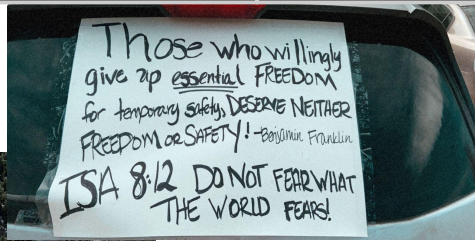 Those who willingly
give up essential FREEDOM
for temporary safety, DESERVE NEITHER
FREEDOM OR SAFETY! -Benjamin Franklin
ISA 8:12 DO NOT FEAR WHAT
THE WORLD FEARS!